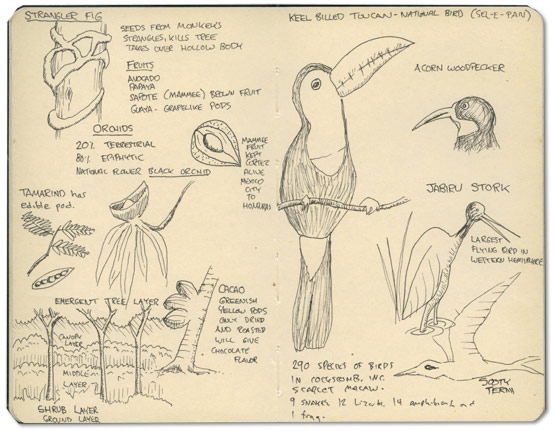 STRANGLER FIG
SEEDS FROM MONKEYS
STRANGLES, KILLS TREE
TAKES OVER HOLLOW BODY
FRUITS
AVOKADO
PAPAYA
SAPOTE (MAMMEE) BROWN FRUIT
GUAYA - GRAPELIKE PODS
ORCHIDS
20% TERRESTRIAL
80% EPIPHYTIC
NATIONAL FLOWER BLACK ORCHID
MAMMEE
FRUIT
KEPT
CORTEZ
ALIVE
MEXICO
CITY
TO
HONDURAS
TAMARIND has
edible pod.
EMERGENT TREE LAYER
CANOPY
LAYER
MIDDLE
LAYER
SHRUB LAYER
GROUND LAYER
CACAO
GREENISH
YELLOW PODS
ONLY DRIED
AND ROASTED
WILL GIVE
CHOCOLATE
FLAVOR
KEEL BILLED TOUCAN - NATIONAL BIRD
ACORN WOODPECKER
JABIRU STORK
LARGEST
FLYING BIRD IN
WESTERN HEMISPHERE
SOOTY
TERN
290 SPECIES OF BIRDS
IN COCKSCOMB, INC.
SCARLET MACAW.
9 SNAKES 12 Lizards 14 amphibians and
1 frog.